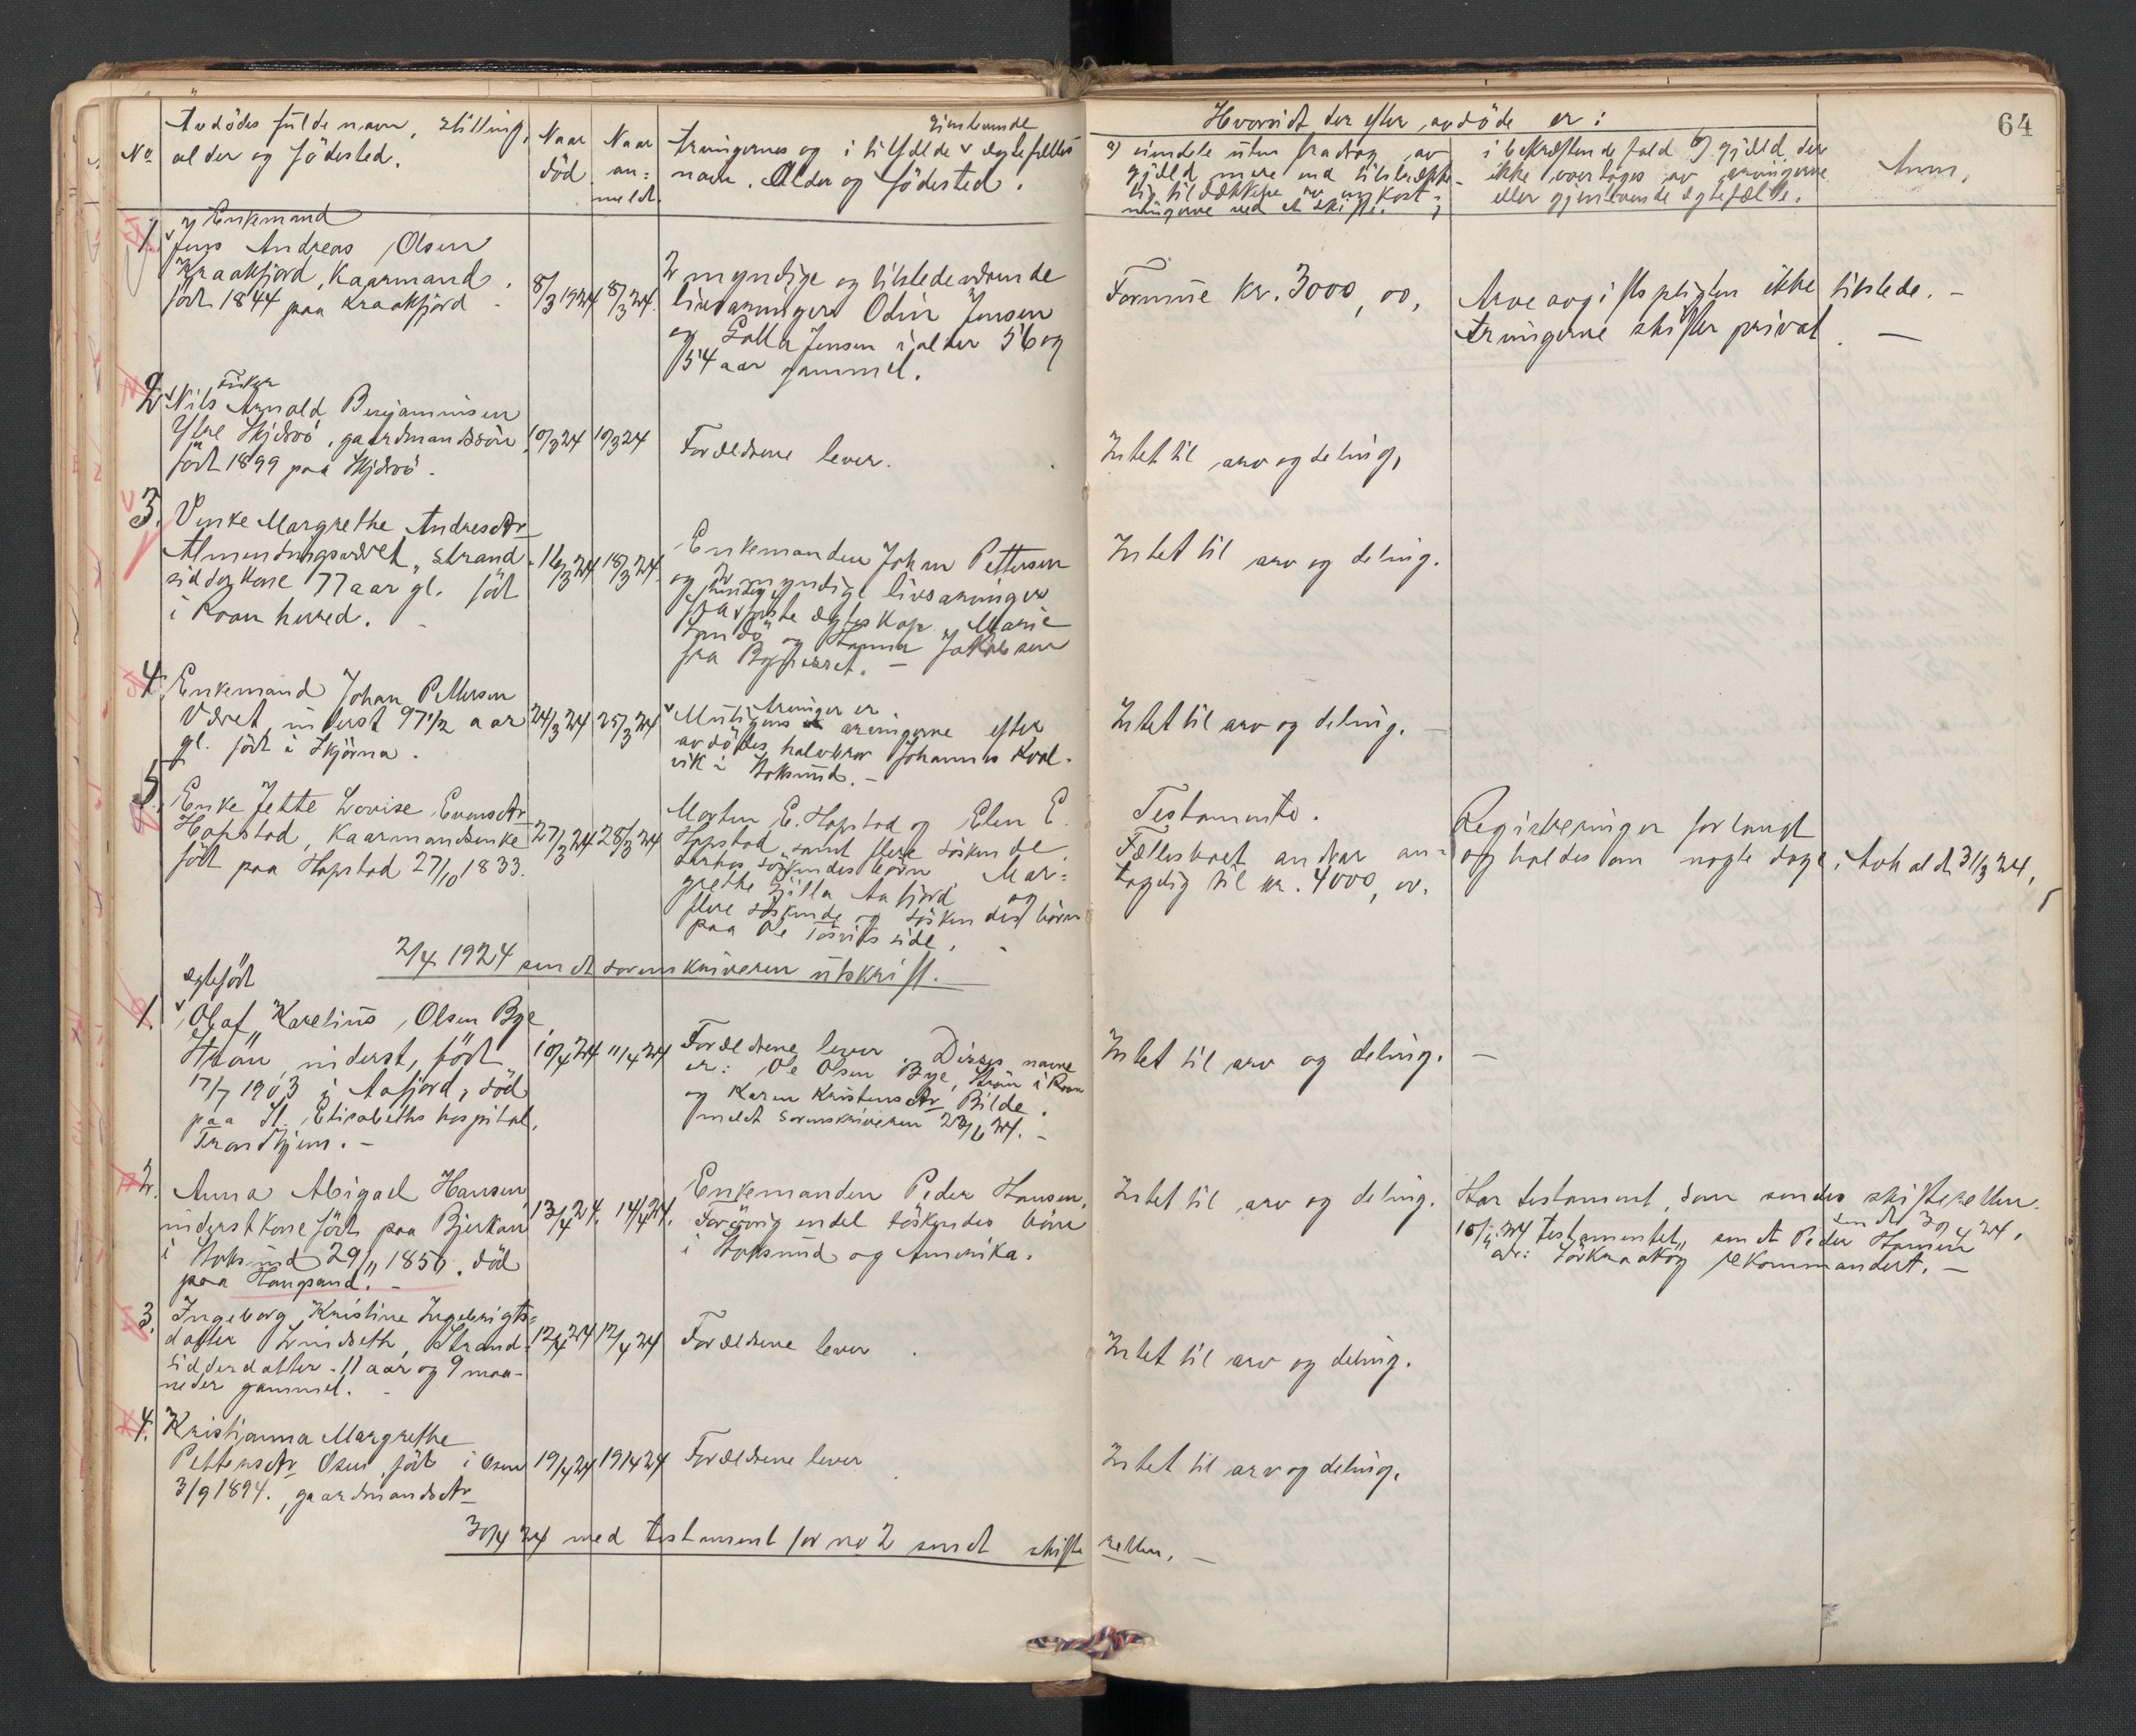 64
No.
Avdödes fulde navn, stilling,
alder og födested.
Naar
död
Naar
an=
meldt.
gjenlevende
Arvingernes og i tilfælde ægtefælles
navn. Alder og födested.
Hvorvidt der efter avdöde er:
a) eiendele uten fradrag av
gjæld mere end tilstrække-
lig til dækkelse av omkost-
ningerne ved et skifte.
i bekræftende fald b) gjæld, der
ikke overtages av arvingerne
eller gjenlevende ægtefælle.
Anm.
1.
Enkemand
Jens Andreas Olsen
Kraakfjord, Kaarmand.
födt 1844 paa Kraakfjord
8/3 1924
8/3 24.
2 myndige og tilstedeværende
livsarvinger Odin Jensen
og Jensen i alder 56 og
54 aar gammel.
Formue kr. 3000,00,
Arveavgiftspligten ikke tilstede. -
Arvingerne skifter privat. -
2
Fisker
Nils Arnold Benjaminsen
Ytre Skjervö, gaardmandssön
födt 1899 paa Skjervö.
10/3 24
10/3 24
Forældrene lever.
Intet til arv og deling,
3.
Vinke Margrethe Andresdtr
Almenningsværet, strand-
sidderkone 77 aar gl. födt
i Roan herred.
16/3 24
18/3 24.
Enkemanden Johan Pettersen
og 2 myndige livsarvinger
fra förste ægteskap, Marie
Sandö og Hanna Jakobsen
fra Bessaker. -
Intet til arv og deling.
4.
Enkemand Johan Pettersen
Været, inderst 97 1/2 aar
gl. födt i Skjörna.
24/3 24
25/3 24
Arvinger er
Muligens arvingerne efter
avdödes halvbror Johannes Kval-
vik i Stoksund. -
Intet til arv og deling. -
5.
Enke Jette Lovise Evensdtr
Hopstad, Kaarmandsenke
födt paa Hopstad 27/10 1833.
27/3 24
28/3 24
Morten E. Hopstad og Elen E.
Hopstad, samt flere söskende,
derhos söskendes börn Mar=
grethe Aafjord og
flere söskende og söskendes börn
paa Ole side.
Testamente.
Fællesboet andrar an-
tagelig til kr. 4000,00.
Registreringen forlangt
og holdes om nogle dage. Avholdt 31/3 24,
2/4 1924 sendt sorenskriveren utskrift. -
1.
ektefödt
Olaf Karelius Olsen Bye
Strön, inderst, födt
17/7 1903 i Aafjord, död
paa St. Elisabeths hospital,
Trondhjem. -
10/4 24
11/4 24
Forældrene lever. Disses navne
er: Ole Olsen Bye, Strön i Roan
og Karen Kristensdtr Bilde.
meldt sorenskriveren 23/6 24. -
Intet til arv og deling. -
2.
Anna Abigael Hansen
inderstkone födt paa Bjerkan
i Stoksund 29/11 1856. död
paa Haugsand. -
13/4 24.
14/4 24.
Enkemanden Peder Hansen.
Forövrig endel söskendes börn
i Stoksund og Amerika.
Intet til arv og deling.
Har testament, som sendes skifteretten.
sendt 30/4 24.
testamentet, sendt Peder Hansen
adr: Sörkraaköy rekommandert. -
3.
Ingeborg Kristine Ingebrigts-
datter Lindseth, Strand-
sidderdatter. 11 aar og 9 maa-
neder gammel. -
12/4 24
12/4 24
Forældrene lever.
Intet til arv og deling.
4.
Kristianna Margrethe
Pettersdtr Osen, födt i Osen
3/9 1894. gaardmandsdtr
19/4 24
19/4 24
Forældrene lever
Intet til arv og deling,
30/4 24 med testament for no 2 sendt skifteretten. -